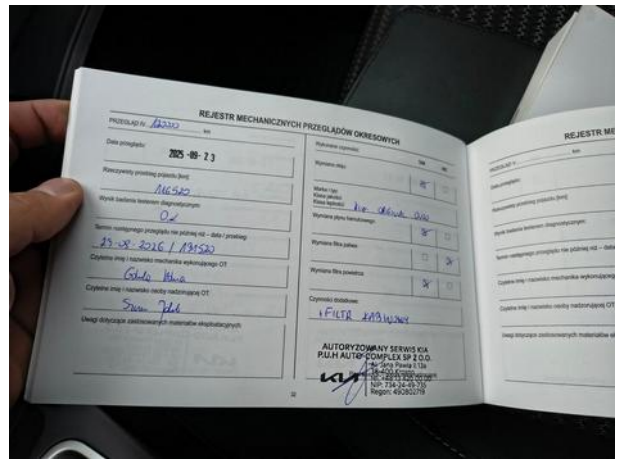 REJESTR MECHANICZNYCH PRZEGLĄDÓW OKRESOWYCH
PRZEGLĄD Nr km
Data przeglądu:
2025 -09- 23
Rzeczywisty przebieg pojazdu [km]:
116520
Wynik badania testerem diagnostycznym:
Ok
Termin następnego przeglądu nie później niż – data / przebieg:
23-09-2026 / 131520
Czytelne imię i nazwisko mechanika wykonującego OT:
Czytelne imię i nazwisko osoby nadzorującej OT:
Uwagi dotyczące zastosowanych materiałów eksploatacyjnych:
Wykonane czynności:
TAK
NIE
Wymiana oleju:
Marka / typ:
Klasa jakości:
Klasa lepkości:
Wymiana płynu hamulcowego:
Wymiana filtra paliwa:
Wymiana filtra powietrza:
Czynności dodatkowe:
+FILTR KABINOWY
AUTORYZOWANY SERWIS KIA
P.U.H AUTO COMPLEX SP Z O.O.
Jana Pawła II
38-400 Krosno
NIP: 734-24-49-735
Regon: 492802719
32
REJESTR ME
PRZEGLĄD Nr km
Data przeglądu:
Rzeczywisty przebieg pojazdu [km]:
Wynik badania testerem diagnostycznym:
Termin następnego przeglądu nie później niż – data
Czytelne imię i nazwisko mechanika wykonującego
Czytelne imię i nazwisko osoby nadzorującej OT:
Uwagi dotyczące zastosowanych materiałów